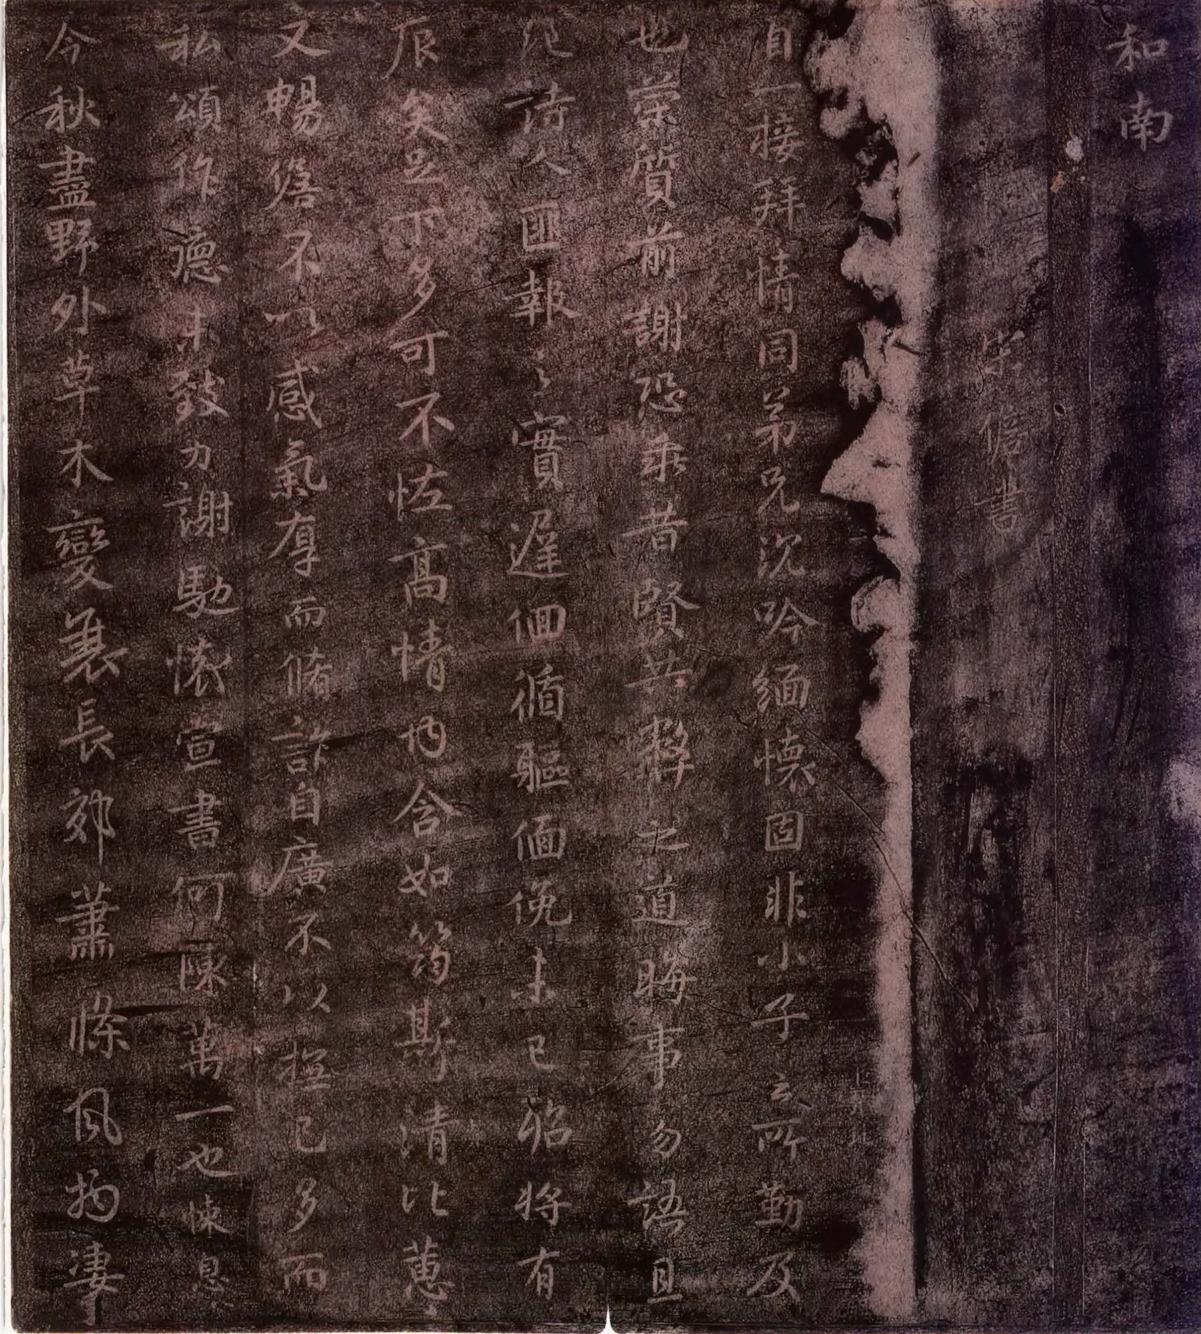 和南
宋儋書
自一接拜情同弟兄沉吟緬懷固非小子之所勤及
也榮質前謝恐乖昔賢共弊之道晦事勿語且
絕詩人匪報之實遲佪循軀僶俛未已貽將有
辰矣足下多可不恠高情內含如筠斯清比蕙
又暢儋不以感氣厚而脩詐自廣不以撫己多而
私頌作德未致力謝馳懷宣書何陳萬一也悚息
今秋盡野外草木變衰長郊蕭條風物淒